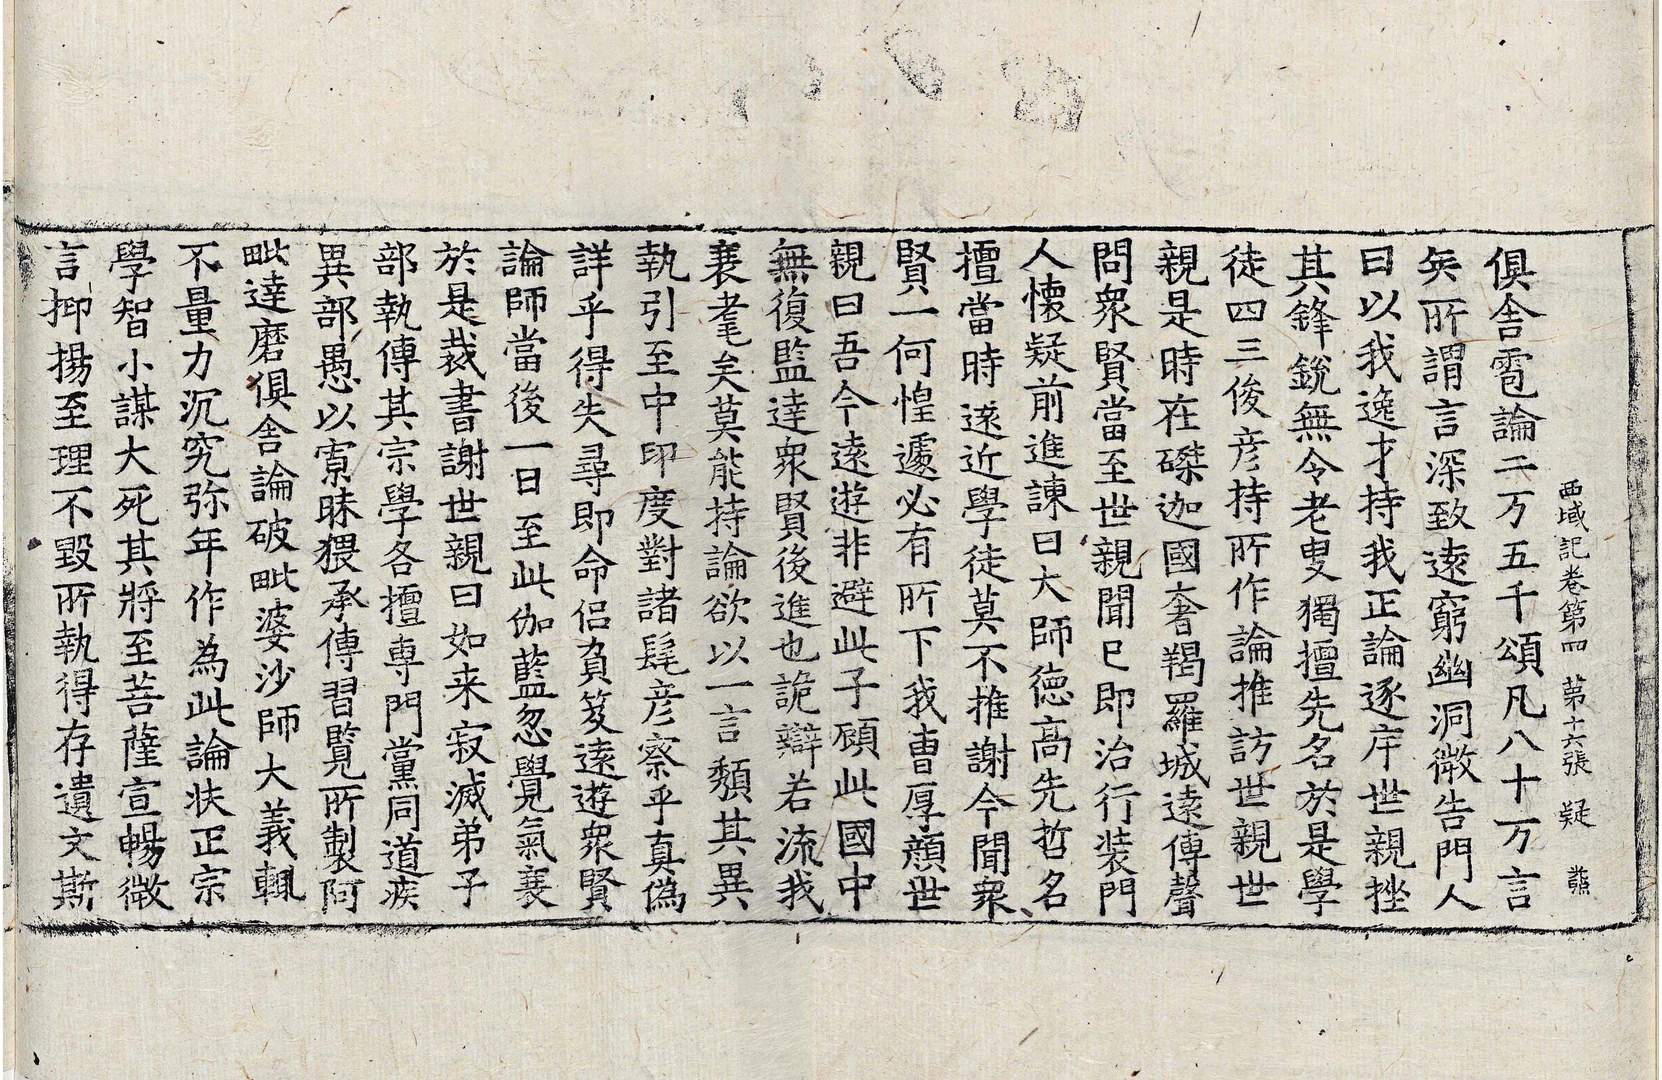 西域記卷第四 第十六張 疑
俱舍雹論二万五千頌凡八十万言
矣所謂言深致遠窮幽洞微告門人
曰以我逸才持我正論逐斥世親挫
其鋒銳無令老叟獨擅先名於是學
徒四三俊彦持所作論推訪世親世
親是時在磔迦國奢羯羅城遠傳聲
問衆賢當至世親聞已即治行裝門
人懷疑前進諫曰大師德高先哲名
擅當時遠近學徒莫不推謝今聞衆
賢一何惶遽必有所下我曹厚顏世
親曰吾今遠遊非避此子顧此國中
無復監達衆賢後進也詭辯若流我
衰耄矣莫能持論欲以一言頽其異
執引至中印度對諸髦彦察乎真僞
詳乎得失尋即命侶負笈遠遊衆賢
論師當後一日至此伽藍忽覺氣衰
於是裁書謝世親曰如来寂滅弟子
部執傳其宗學各擅專門黨同道疾
異部愚以寡昧猥承傳習覽所製阿
毗達磨俱舍論破毗婆沙師大義輙
不量力沉究弥年作為此論扶正宗
學智小謀大死其將至菩薩宣暢微
言抑揚至理不毀所執得存遺文斯